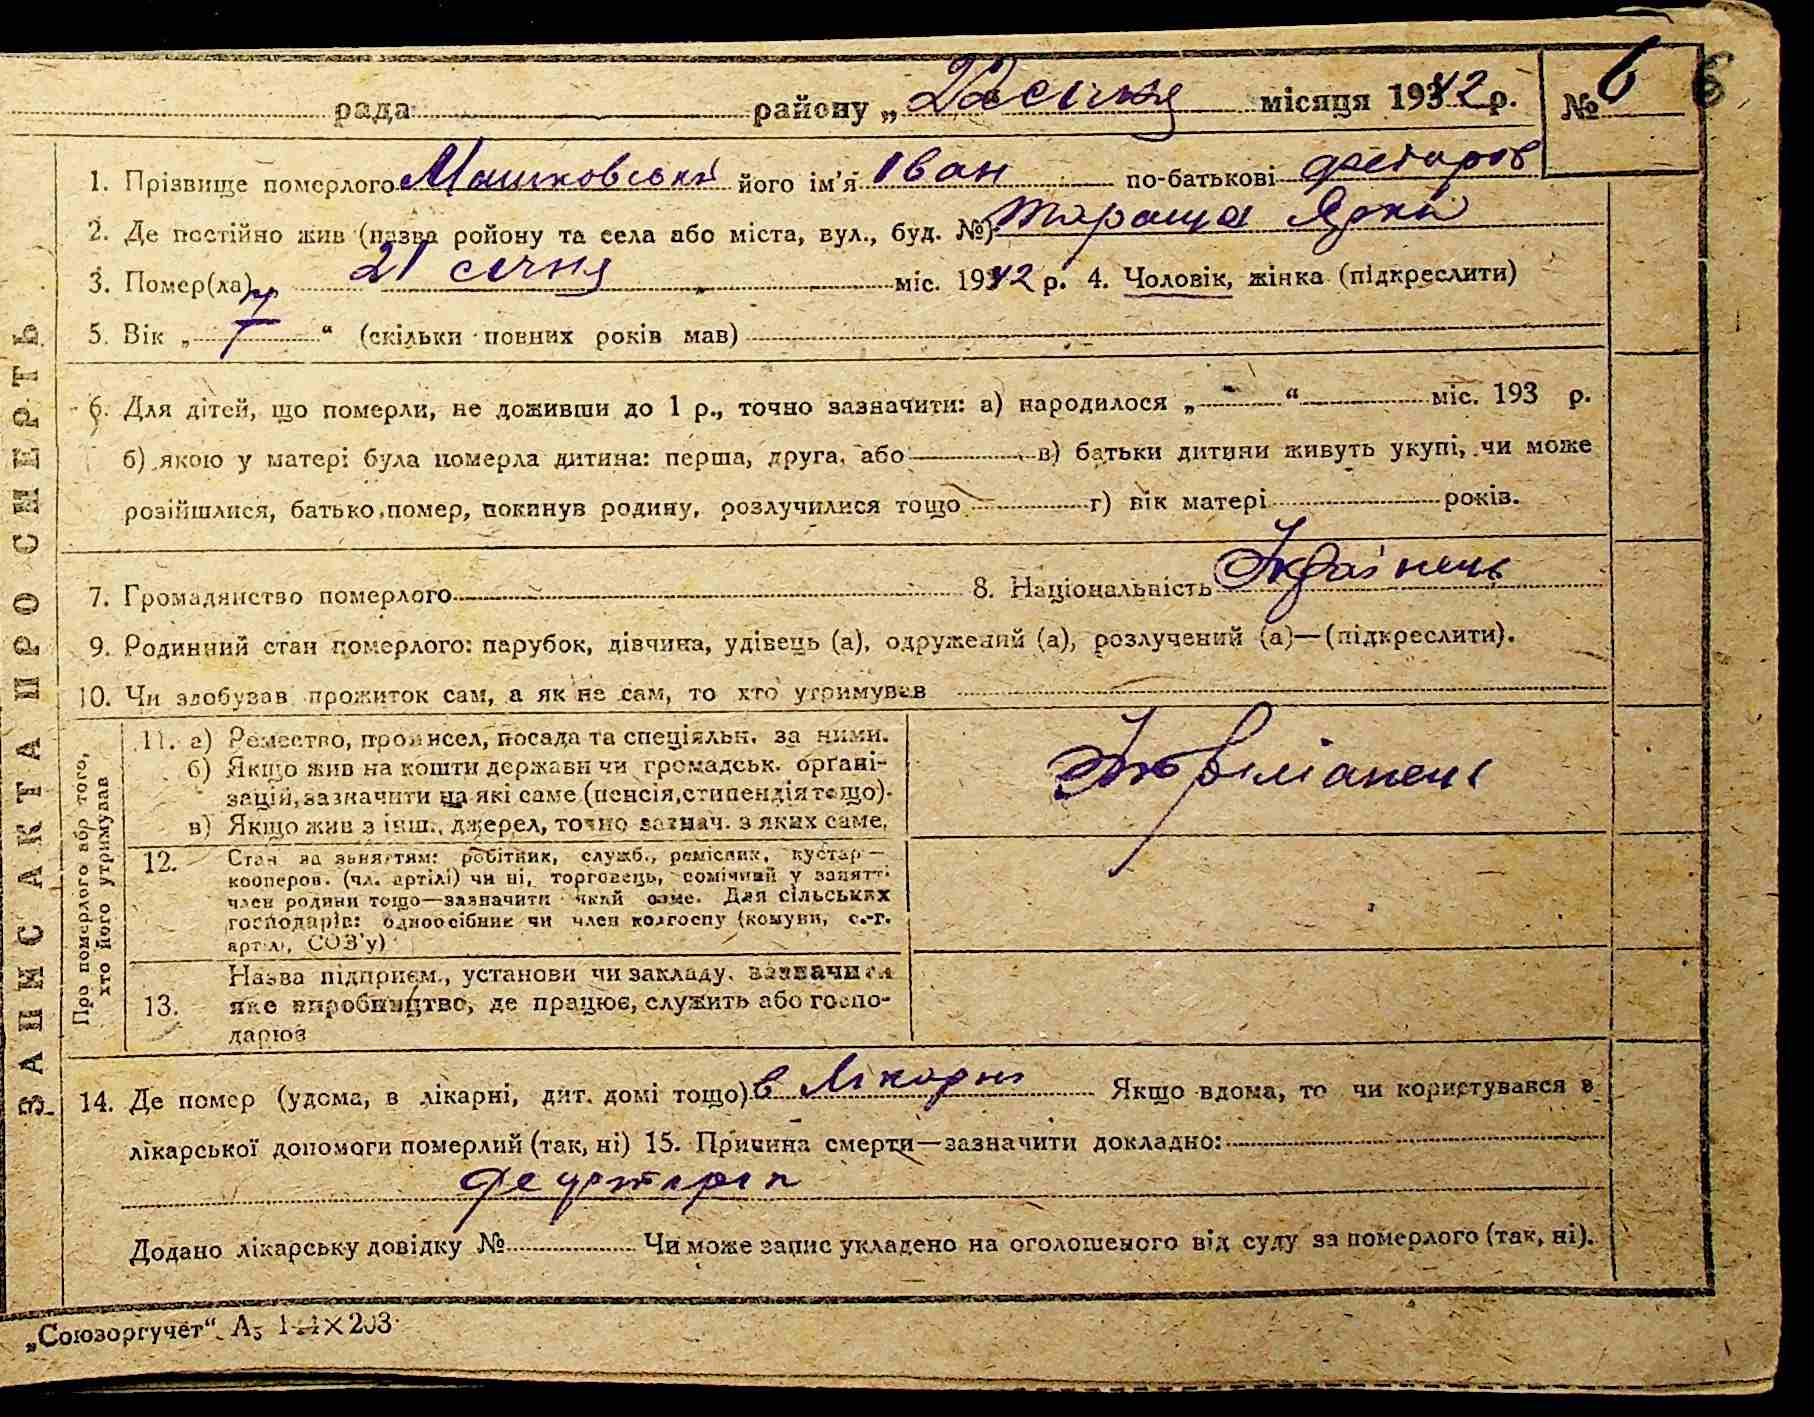 рада районұ „ 22 січня місяця 1942 р. № 6 6
1. Прізвище померлого Машковський його ім'я Іван по-батькові Федоров
2. Де постійно жив (назва ройону та села або міста, вул., буд. №) Тараща Ярки
3. Помер(ла) 21 січня „ міс. 1942 р. 4. Чоловік, жінка (підкреслити)
5. Вік „ 7 “ (скільки повних років мав)
6. Для дітей, що померли, не доживши до 1 р., точно зазначити: а) народилося „ “ міс. 193 р.
б) якою у матері була померла дитина: перша, друга, або в) батьки дитини живуть укупі, чи може
розійшлися, батько помер, покинув родину, розлучилися тощо г) вік матері років.
7. Громадянство померлого 8. Національність Українець
9. Родинний стан померлого: парубок, дівчина, удівець (а), одружений (а), розлучений (а)—(підкреслити).
10. Чи здобував прожиток сам, а як не сам, то хто утримував
ЗАПИСКА ПРО СМЕРТЬ
Про померлого або того,
хто його утримував
11. а) Ремество, промисел, посада та спеціяльн. за ними.
б) Якщо жив на кошти держави чи громадськ. орґані-
зацій, зазначити на які саме (пенсія, стипендія тощо).
в) Якщо жив з інш. джерел, точно зазнач. з яких саме.
Утриманець
12. Стан за заняттям: робітник, служб., ремісник, кустар—
кооперов. (чл. артілі) чи ні, торговець, помічний у занятті
член родини тощо—зазначити який саме. Для сільських
господарів: одноосібник чи член колгоспу (комуни, с.-г.
артілі, СОЗ'у)
13. Назва підприєм., установи чи закладу, зазначити
яке виробництво, де працює, служить або госпо-
дарює
14. Де помер (удома, в лікарні, дит. домі тощо) в лікарні Якщо вдома, то чи користувався в
лікарської допомоги померлий (так, ні) 15. Причина смерти—зазначити докладно:
Додано лікарську довідку № Чи може запис укладено на оголошеного від суду за померлого (так, ні).
„Союзоргучет“ А5 144×203